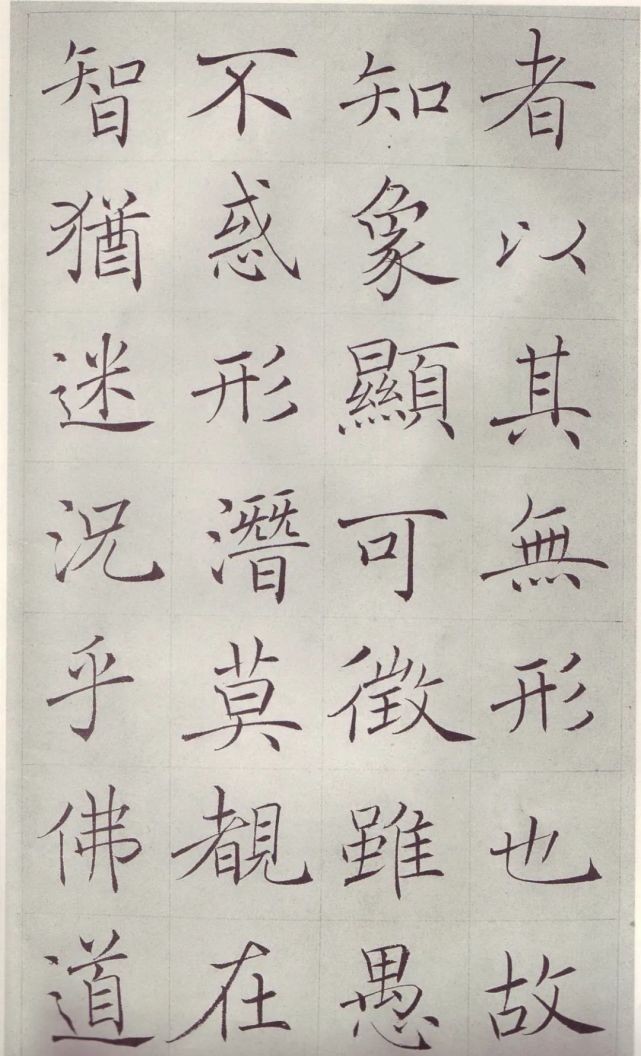 者以其無形也故
知象顯可徵雖愚
不惑形潛莫覩在
智猶迷况乎佛道